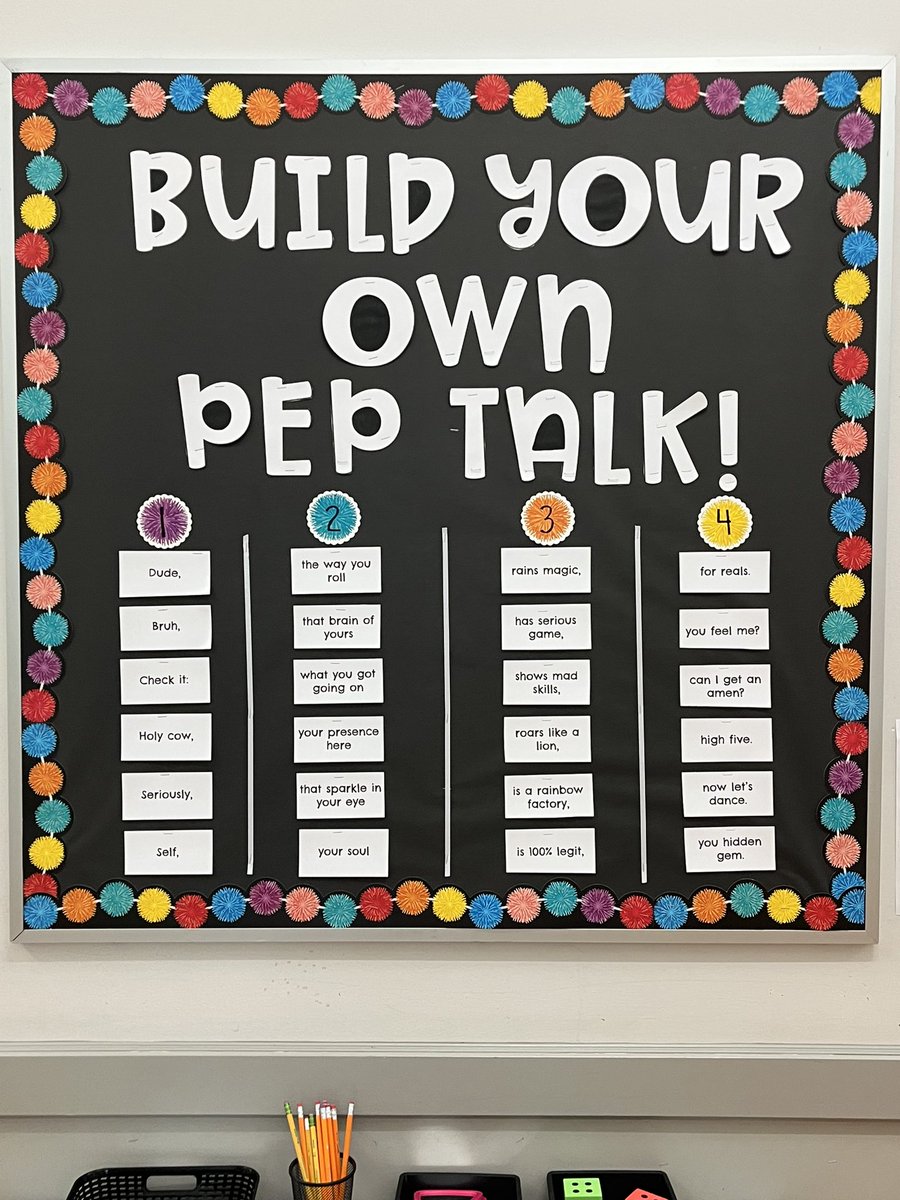 BUILD YOUR
OWN
PEP TALK!
1
2
3
4
Dude,
the way you
roll
rains magic,
for reals.
Bruh,
that brain of
yours
has serious
game,
you feel me?
Check it:
what you got
going on
shows mad
skills,
can I get an
amen?
Holy cow,
your presence
here
roars like a
lion,
high five.
Seriously,
that sparkle in
your eye
is a rainbow
factory,
now let's
dance.
Self,
your soul
is 100% legit,
you hidden
gem.